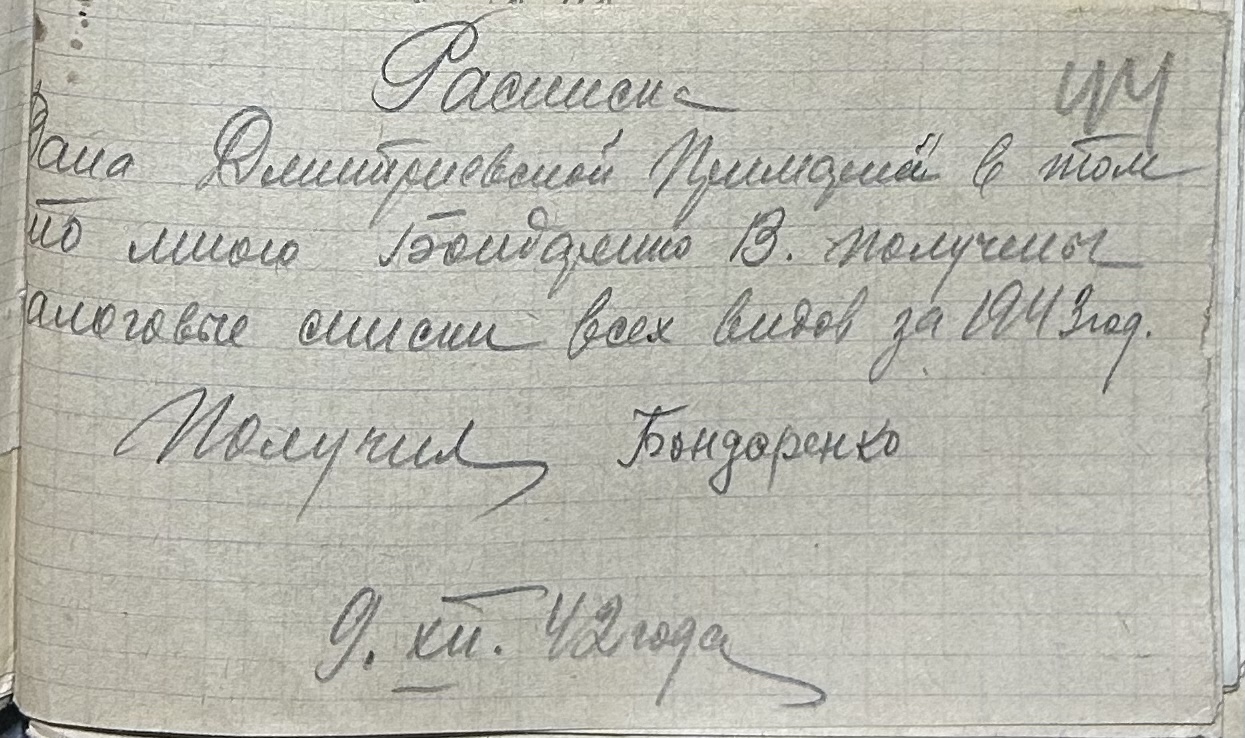 Расписка
44
Дана Дмитриевской Примарии в том
что мною Бондаренко В. получены
алоговые списки всех видов за 1943 год.
Получил Бондаренко
9. XII. 42 года